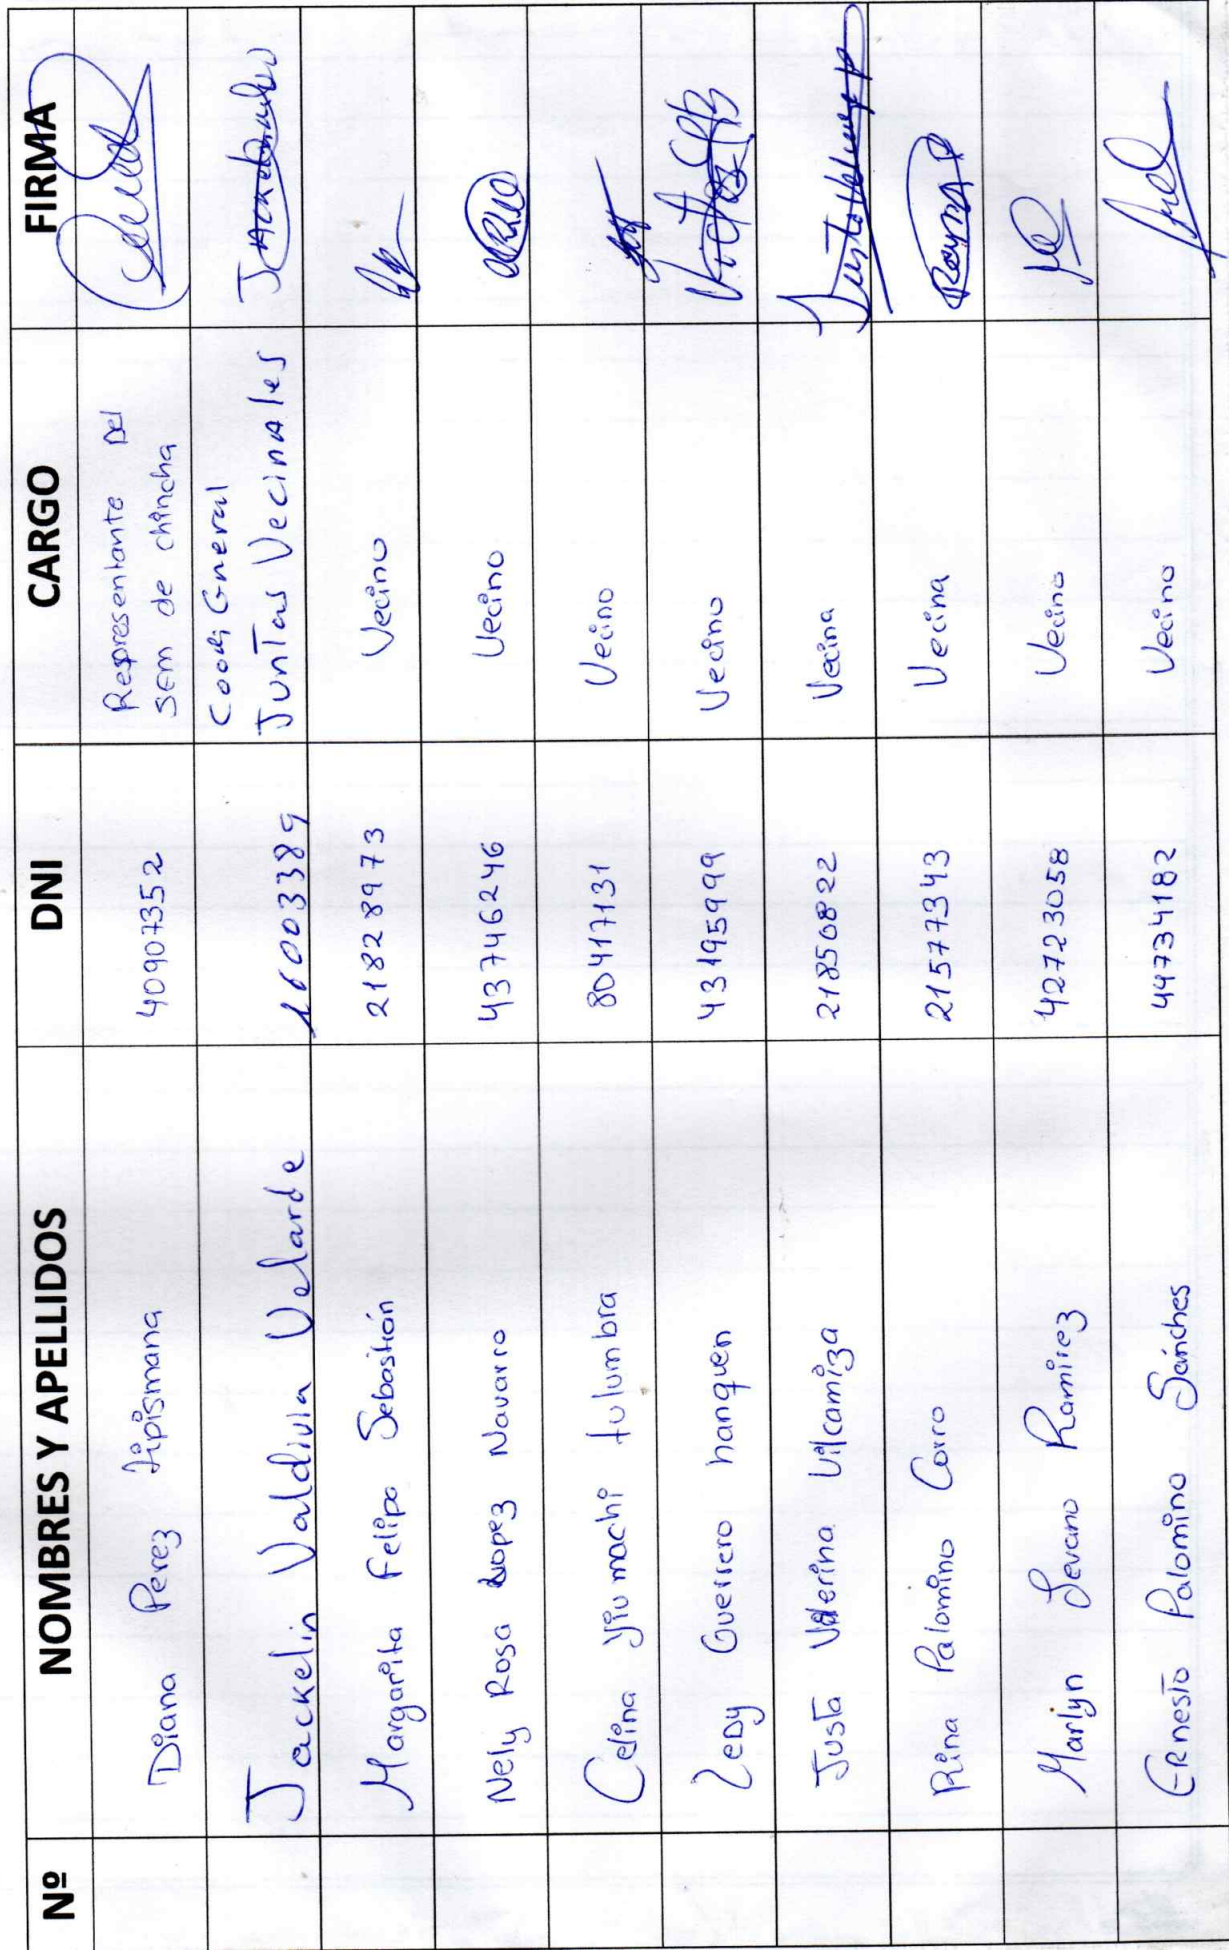 Nº NOMBRES Y APELLIDOS DNI CARGO FIRMA
Diana Perez Tipismana 40907352 Respresentante Del
Sem de chincha
Jackelin Valdivia Velarde Gneral
Juntas Vecinales
Margarita Felipa Sebastián 21828973 Vecino
Nely Rosa Lopez Navarro 43746246 Vecino
Celina Yiumachi tulumbra 80417131 Vecino
Guerrero hanquen Vecino
Justa Valerina Vilcamiza 21850822 Vecina
Rina Palomino Corro 21577343 Vecina
Marlyn Levano Ramirez 42723058 Vecino
Ernesto Palomino Sánches 44734182 Vecino